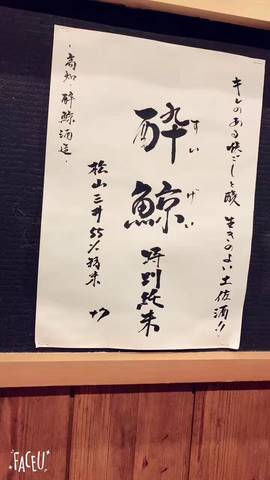 キレのある味ごしと酸 生きのよい土佐酒!!
酔鯨 特別純米
すいげい
松山三井55%精米
・高知 酔鯨酒造・
FACEU